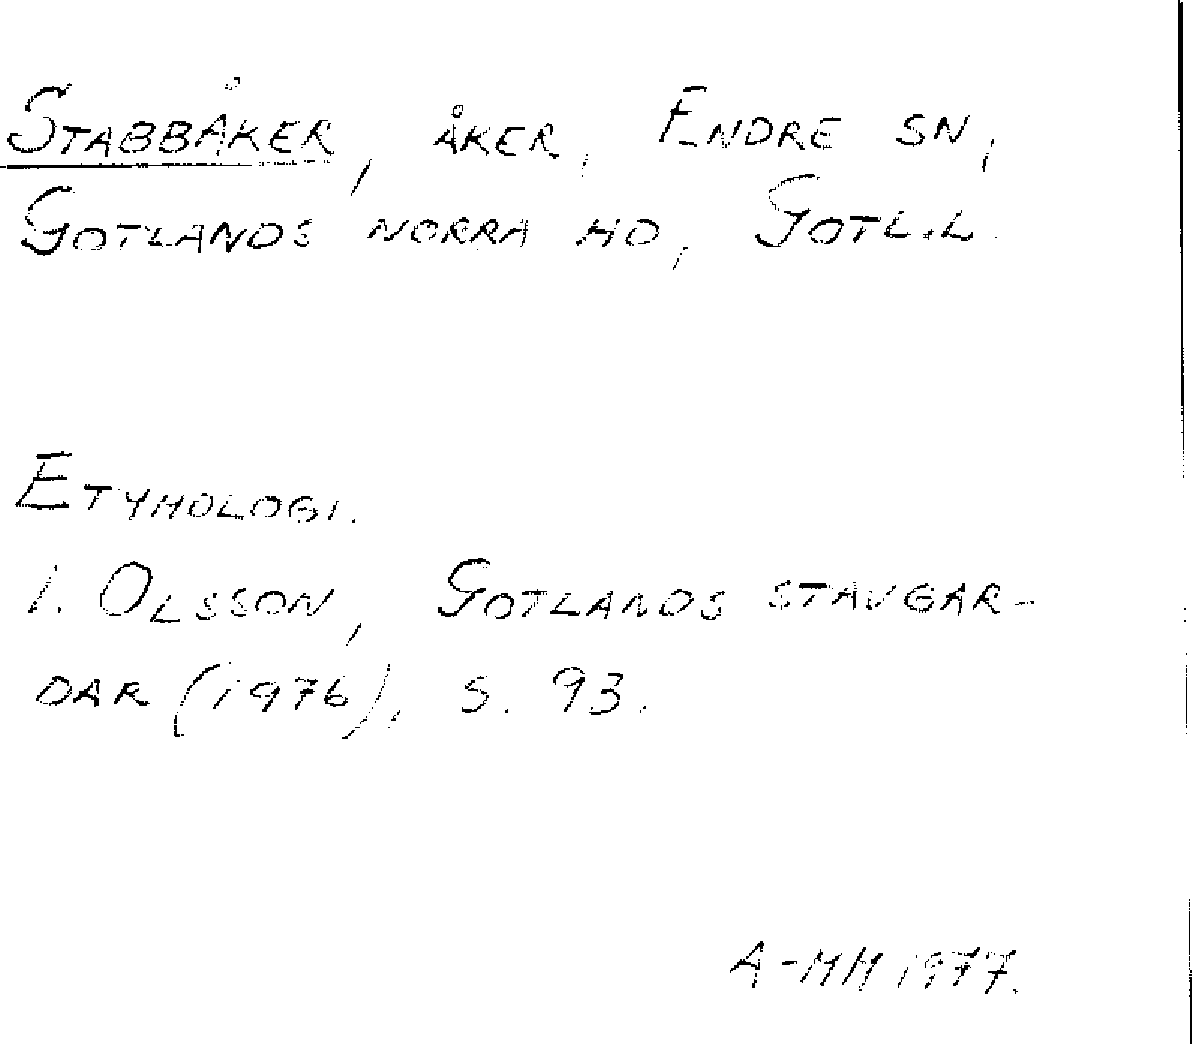 STABBÅKER, ÅKER, ENDRE SN,
GOTLANDS NORRA HD, GOTL.L.
ETYMOLOGI.
I. OLSSON, GOTLANDS STAVGAR-
DAR (1976), S. 93.
A-MH 1977.